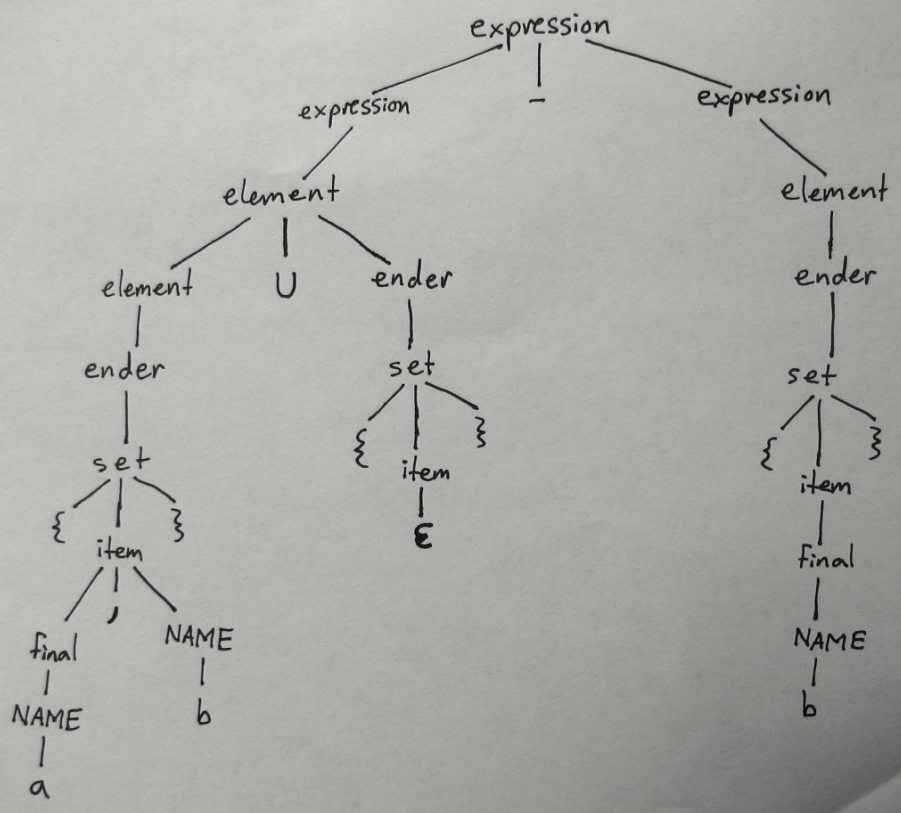 expression
expression - expression
element element
element U ender ender
ender set set
set { item } { item }
{ item } ε final
final , NAME NAME
NAME b b
a